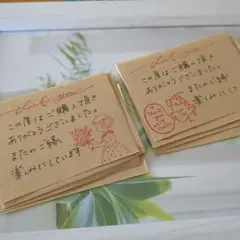 Thank you
この度はご購入頂き
ありがとうございました。
またのご縁
楽しみにしています
この度はご購入頂き
ありがとうございました
またのご縁
楽しみにして